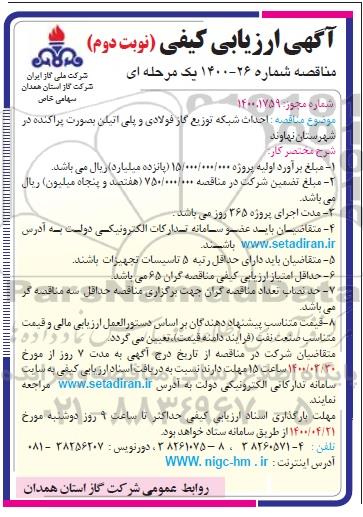 آگهی ارزیابی کیفی (نوبت دوم)
شرکت ملی گاز ایران
شرکت گاز استان همدان
سهامی خاص
مناقصه شماره ۲۶-۱۴۰۰ یک مرحله ای
شماره مجوز: ۱۴۰۰.۱۷۵۹
موضوع مناقصه : احداث شبکه توزیع گاز فولادی و پلی اتیلن بصورت پراکنده در
شهرستان نهاوند
شرح مختصر کار:
۱- مبلغ برآورد اولیه پروژه ۱۵/۰۰۰/۰۰۰/۰۰۰ (پانزده میلیارد) ریال می باشد.
۲- مبلغ تضمین شرکت در مناقصه ۷۵۰/۰۰۰/۰۰۰ (هفتصد و پنجاه میلیون) ریال
می باشد.
۳- مدت اجرای پروژه ۳۶۵ روز می باشد .
۴- متقاضیان باید عضو سامانه تدارکات الکترونیکی دولت به آدرس
www.setadiran.ir باشند.
۵- متقاضیان باید دارای حداقل رتبه ۵ تاسیسات تجهیزات باشند.
۶- حداقل امتیاز ارزیابی کیفی مناقصه گران ۶۵ می باشد.
۷- حد نصاب تعداد مناقصه گران جهت برگزاری مناقصه حداقل سه مناقصه گر
می باشد.
۸- قیمت متناسب پیشنهاد دهندگان بر اساس دستورالعمل ارزیابی مالی و قیمت
متناسب صنعت نفت (فرایند دامنه قیمت)، تعیین می گردد.
متقاضیان شرکت در مناقصه از تاریخ درج آگهی به مدت ۷ روز از مورخ
۱۴۰۰/۰۳/۳۰ ساعت ۱۵ مهلت دارند نسبت به دریافت اسناد ارزیابی کیفی به سایت
سامانه تدارکاتی الکترونیکی دولت به آدرس www.setadiran.ir مراجعه
نمایند.
مهلت بارگذاری اسناد ارزیابی کیفی حداکثر تا ساعت ۹ روز دوشنبه مورخ
۱۴۰۰/۰۴/۲۱ از طریق سامانه ستاد خواهد بود.
تلفن : ۴-۳۸۲۶۰۵۷۱ ، ۷۵-۳۸۲۶۱۰۸ ، دورنویس : ۳۸۲۵۶۲۰۷ -۰۸۱
آدرس اینترنت : WWW. nigc-hm . ir
روابط عمومی شرکت گاز استان همدان